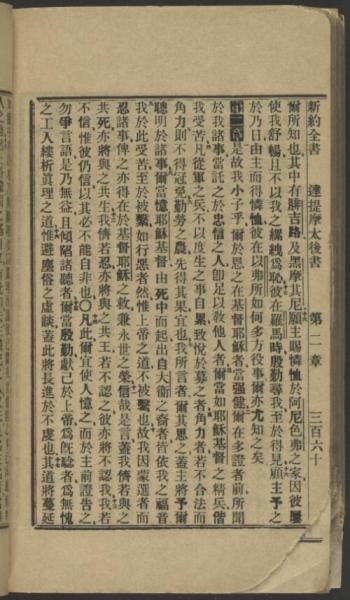 新約全書 達提摩太後書 第二章 三百六十
爾所知也其中有腓吉路及黑摩其尼願主賜憐恤於阿尼色弗之家因彼屢
使我舒暢且不以我之縲絏為恥彼在羅馬時殷勤尋我至於得見願主予之
於乃日由主而得憐恤彼在以弗所如何多方役事爾亦尤知之矣
第二章是故我小子乎爾於恩之在基督耶穌者當强健爾在多證者前所聞
於我諸事當託之於忠信之人即足以教他人者爾當如耶穌基督之精兵偕
我受苦凡從軍之兵不以度生之事自累致悅於募之者角力者若不合法而
角力則不得冠冕勤勞之農先得其果宜也我所言者爾其思之蓋主將予爾
聰明於諸事爾當憶耶穌基督由死中而起出自大衞之裔者皆依我之福音
我於此受苦至於被繫如行惡者然惟上帝之道不被繫也故我因蒙選者而
忍諸事俾之亦得在於基督耶穌之救兼永世之榮信哉是言蓋我儕若與之
共死亦將與之共生我儕若忍亦將與之共王若不認之彼亦將不認我我若
不信惟彼仍信以其必不能自非也〇凡此爾宜使人憶之而於主前證告之
勿爭言語是乃無益且傾陷諸聽者爾當殷勤獻己於上帝為旣諗者為無愧
之工人縷析眞理之道惟避塵俗之虛談蓋此將長進於不虔也其道將蔓延